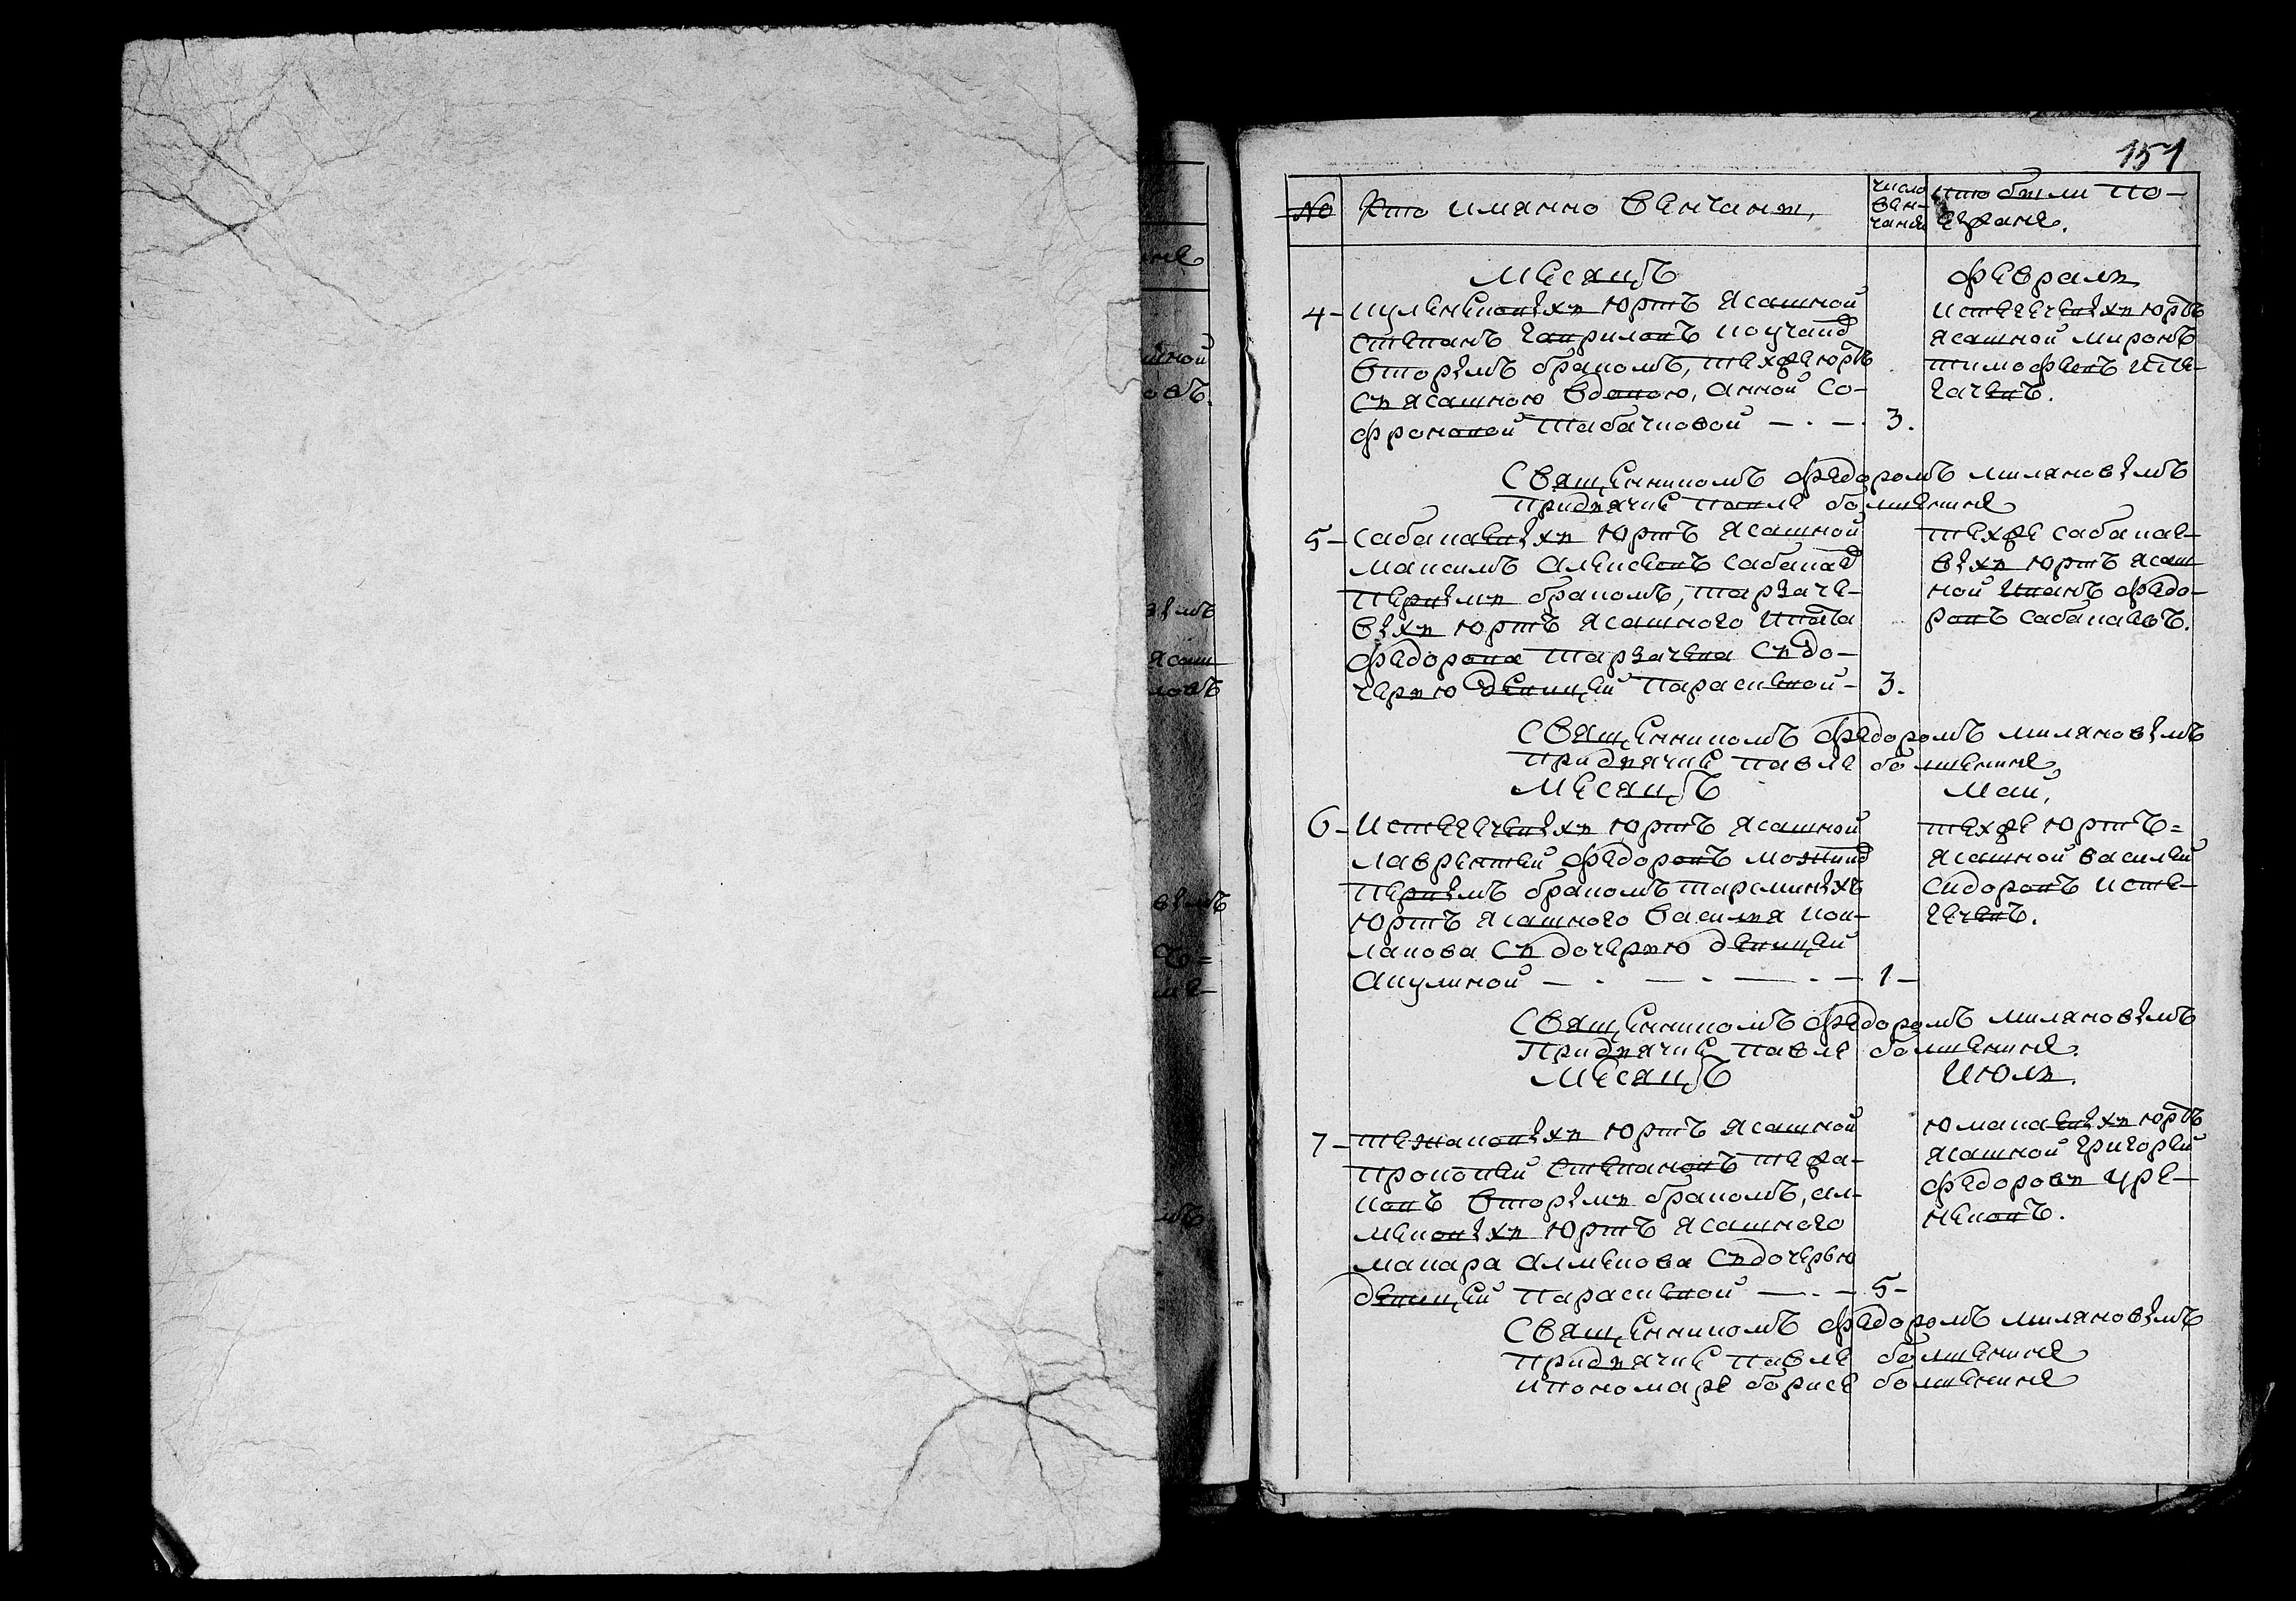 151
№ Кто имянно венчанъ,
число вен-чания
кто были по-
езжане.
Месяцъ
февраль
4- кулен(ек)овыхъ юртъ ясашной
степанъ гавриловъ кочгаид
вторымъ бракомъ, техже юртъ
съ ясашною вдовою, анной со-
фроновой табачковой — . — . 3.
истегечевыхъ юртъ
ясашной миронъ
тимофеевъ исте-
гачевъ.
Священникомъ федоромъ миляновымъ
придьячке павле болшенине
5- сабанаевыхъ юртъ ясашной
максимъ алексеевъ сабанае
первымъ бракомъ, тарзаче-
выхъ юртъ ясашного ивана
федорова тарзачева съ до-
черью девицей парасквой - 3.
техже сабанае-
выхъ юртъ ясаш
ной иванъ федо-
ровъ сабанаевъ.
Священникомъ федоромъ миляновымъ
придьячке павле болшенине
Месяцъ
Маи,
6- Истегечевыхъ юртъ ясашной
лаврентей федоровъ
первымъ бракомъ тарсминыхъ
юртъ ясашного василья кои-
ланова съ дочерью девицей
акулиной — . — . — . — 1 -
техже юртъ =
ясашной василей
сидоровъ исте-
гечевъ.
Священникомъ федоромъ миляновымъ
Придьячке павле болшенине.
Месяцъ
Июль.
7- тежаковыхъ юртъ ясашной
прокопей степановъ тежа-
ковъ вторымъ бракомъ, ал-
меновыхъ юртъ ясашного
макара алменова съ дочерью
девицей парасквой — . — 5 -
юманаевыхъ юртъ
ясашной григорей
федоровъ уре-
нековъ.
Священникомъ федоромъ миляновымъ
придьячке павле болшенине
ипономаре борисе болшенине